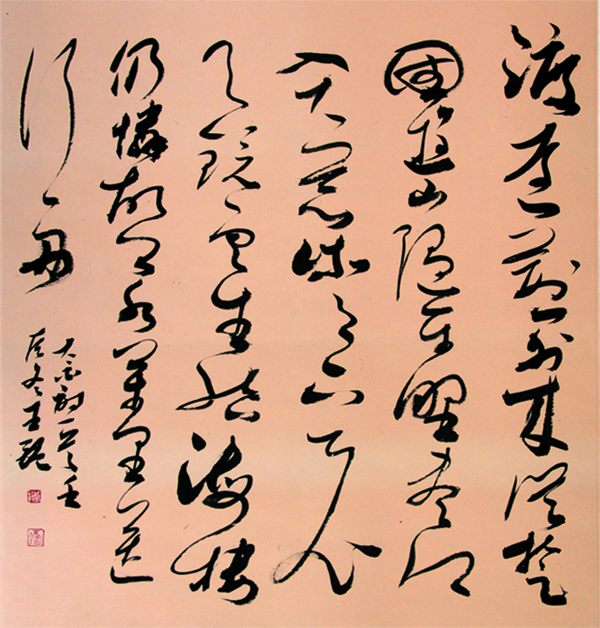 渡遠荊門外來從楚
國遊山隨平野盡江
入大荒流月下飛
天鏡雲生結海樓
仍憐故鄉水萬里送
行舟
太白詩一首壬
冬王